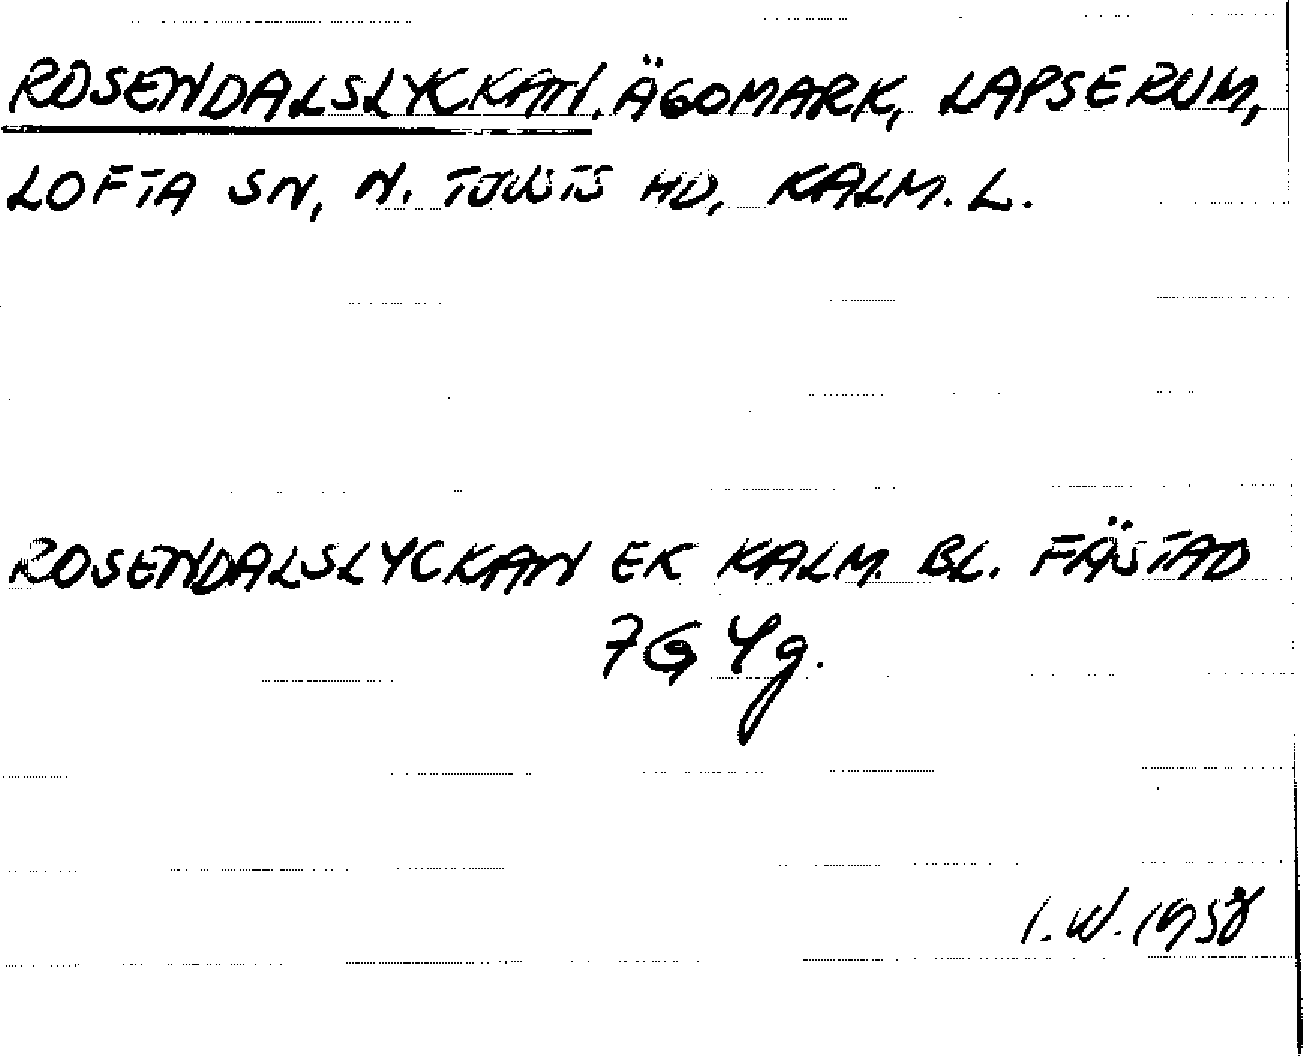 ROSENDALSLYCKAN. ÄGOMARK, LAPSERUM,
LOFTA SN, N. TJUSTS HD, KALM. L.
ROSENDALSLYCKAN EK KALM. BL. FÄSTAD
7G4g.
I.W. 1958